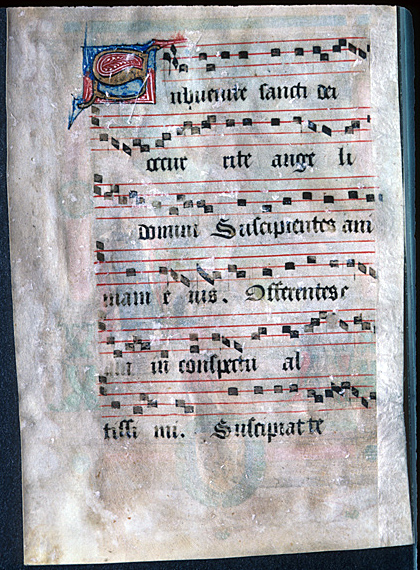 Subvenite sancti dei
occur rite ange li
domini Suscipientes ani
mam e ius. Offerentes e
am in conspectu al
tissi mi. Suscipiat te